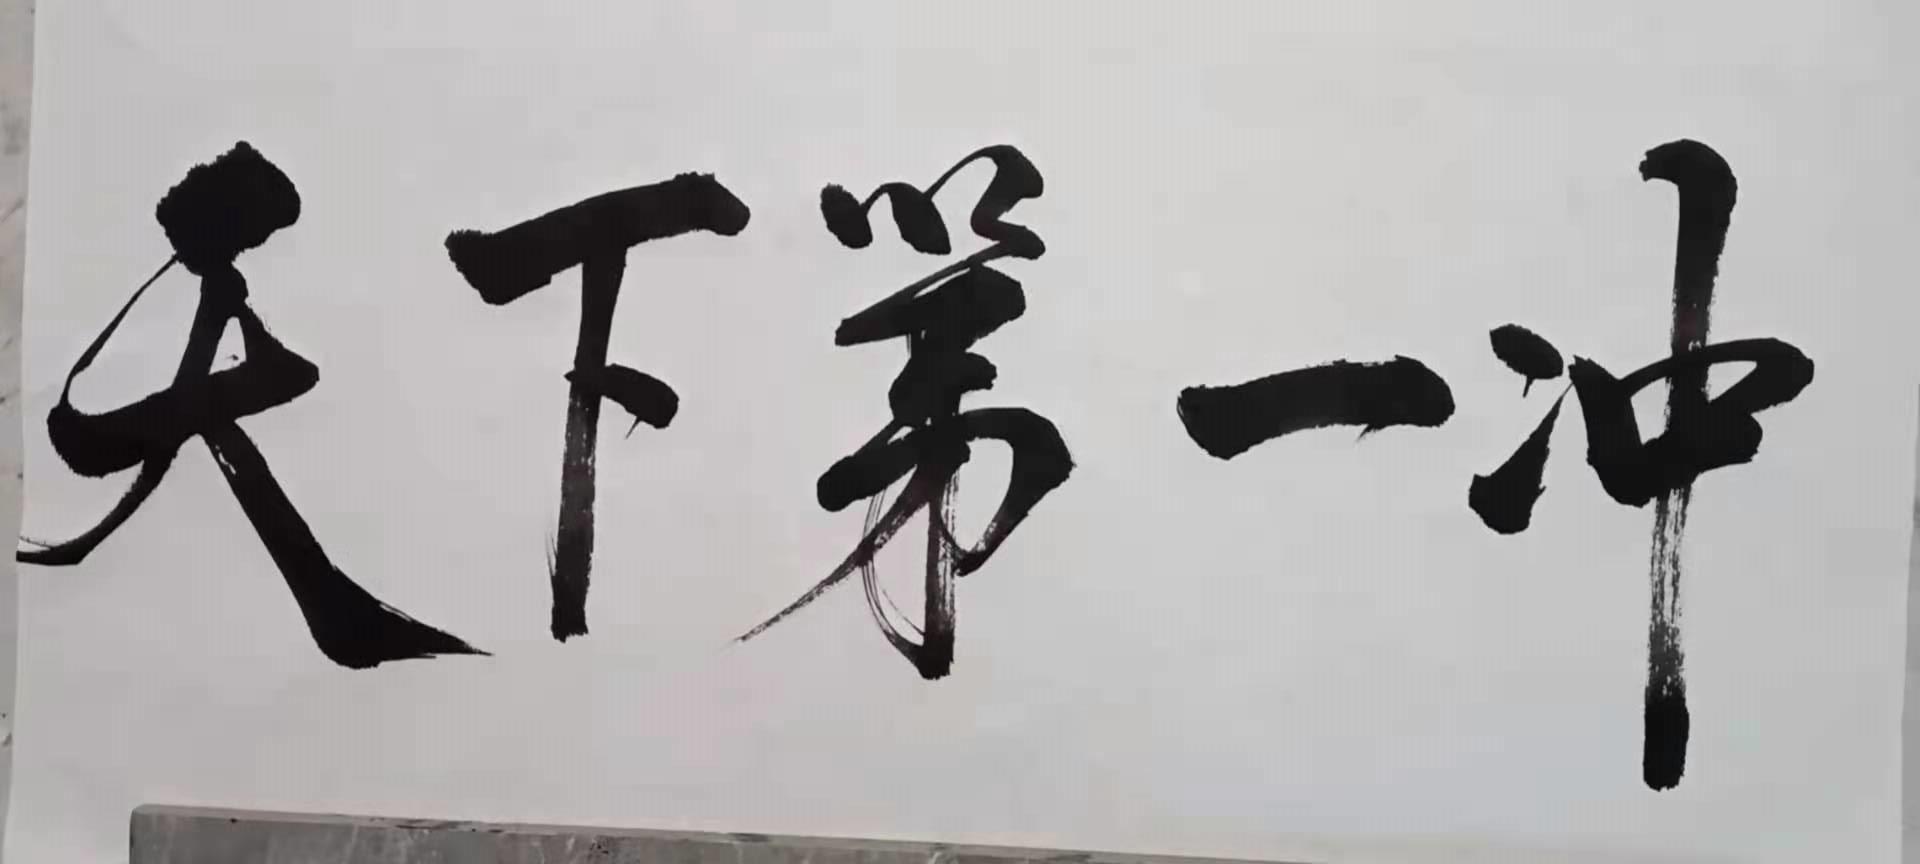 天下第一冲